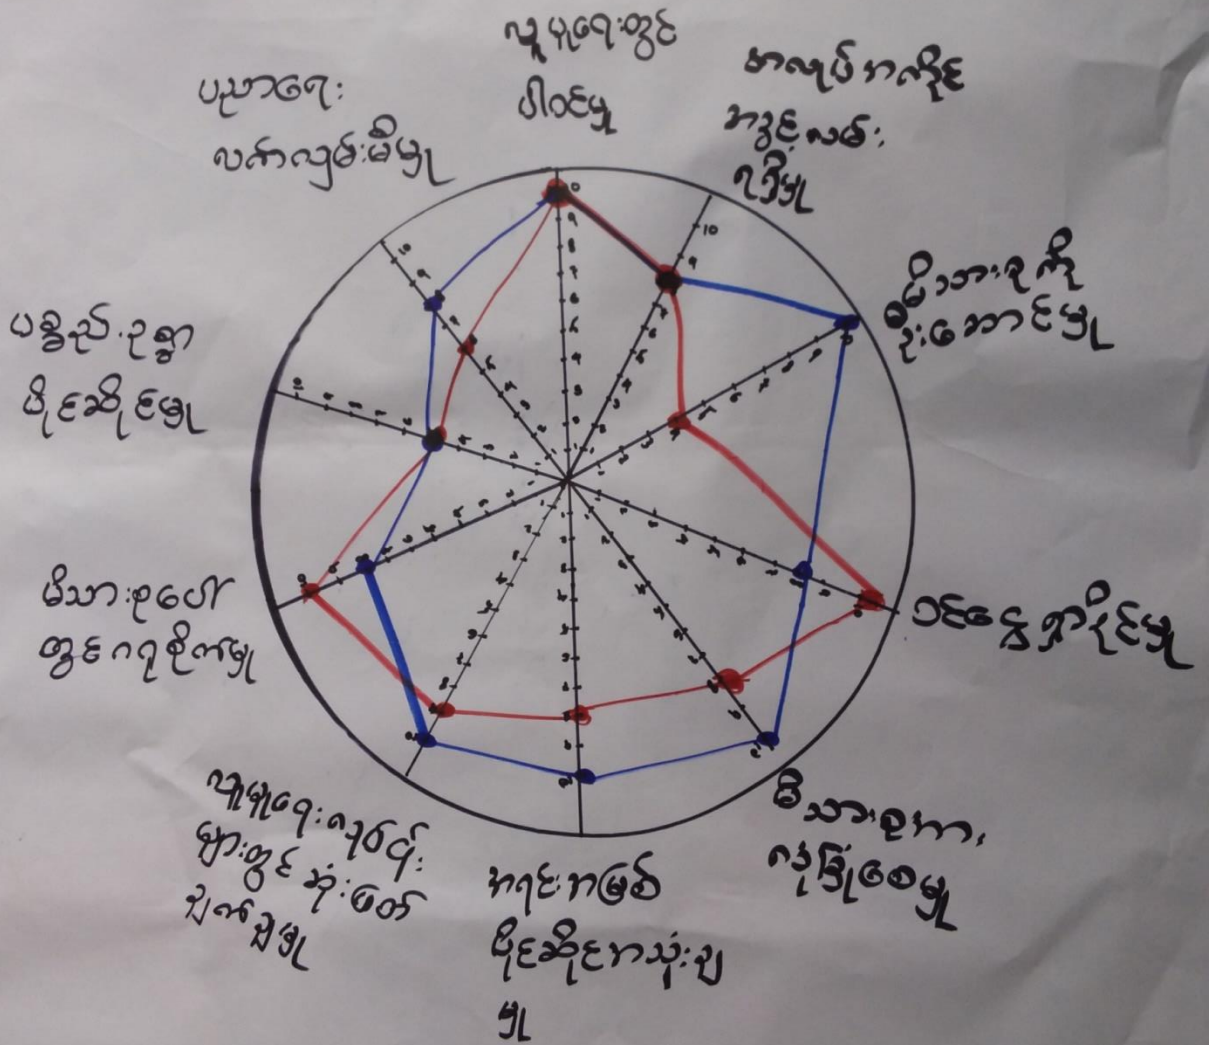 လူမှုရေးတွင်
ပါဝင်မှု
အလုပ်အကိုင်
အခွင့်လမ်း
ရရှိမှု
10
9
မိသားစုကို
ဦးဆောင်မှု
ဝင်ငွေရှာနိုင်မှု
မိသားစုအား
လုံခြုံစေမှု
အရင်းအမြစ်
ပိုင်ဆိုင်အသုံးချ
မှု
လူမှုရေးလုပ်ငန်း
များတွင် ဆုံးဖြတ်
ချက်ချမှု
မိသားစုပေါ်
တွင်ဂရုစိုက်မှု
ပစ္စည်းဥစ္စာ
ပိုင်ဆိုင်မှု
ပညာရေး
လက်လှမ်းမီမှု